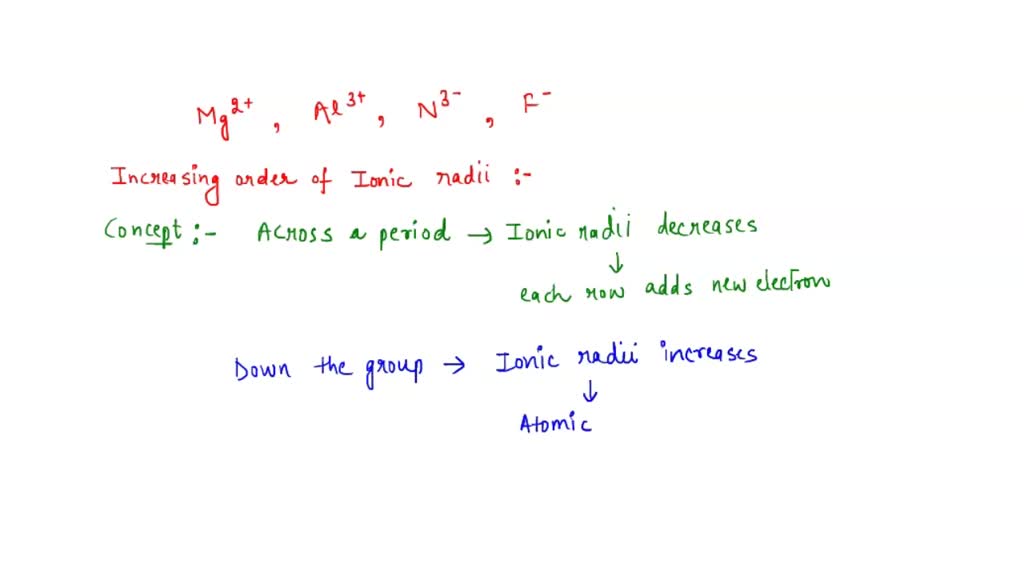 Mg²⁺, Al³⁺, N³⁻, F⁻
Increasing order of Ionic radii :-
Concept :- Across a period → Ionic radii decreases
↓
each row adds new electron
Down the group → Ionic radii increases
↓
Atomic